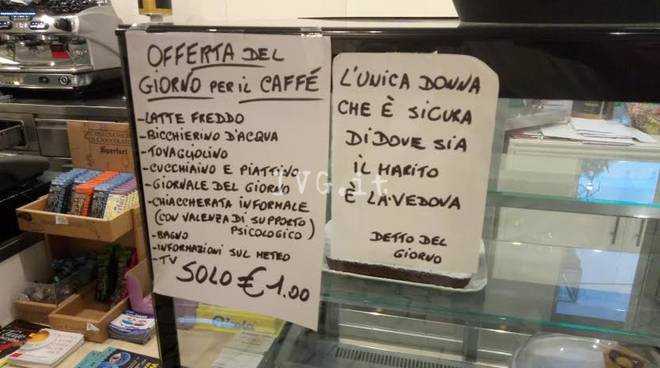 OFFERTA DEL
GIORNO PER IL CAFFÉ
-LATTE FREDDO
-BICCHIERINO D'ACQUA
-TOVAGLIOLINO
-CUCCHIAINO E PIATTINO
-GIORNALE DEL GIORNO
-CHIACCHERATA INFORMALE
(CON VALENZA DI SUPPORTO
PSICOLOGICO)
-BAGNO
-INFORMAZIONI SUL METEO
-TV
SOLO € 1.00
L'UNICA DONNA
CHE È SICURA
DI DOVE SIA
IL MARITO
È LA VEDOVA
DETTO DEL
GIORNO
IVG.it